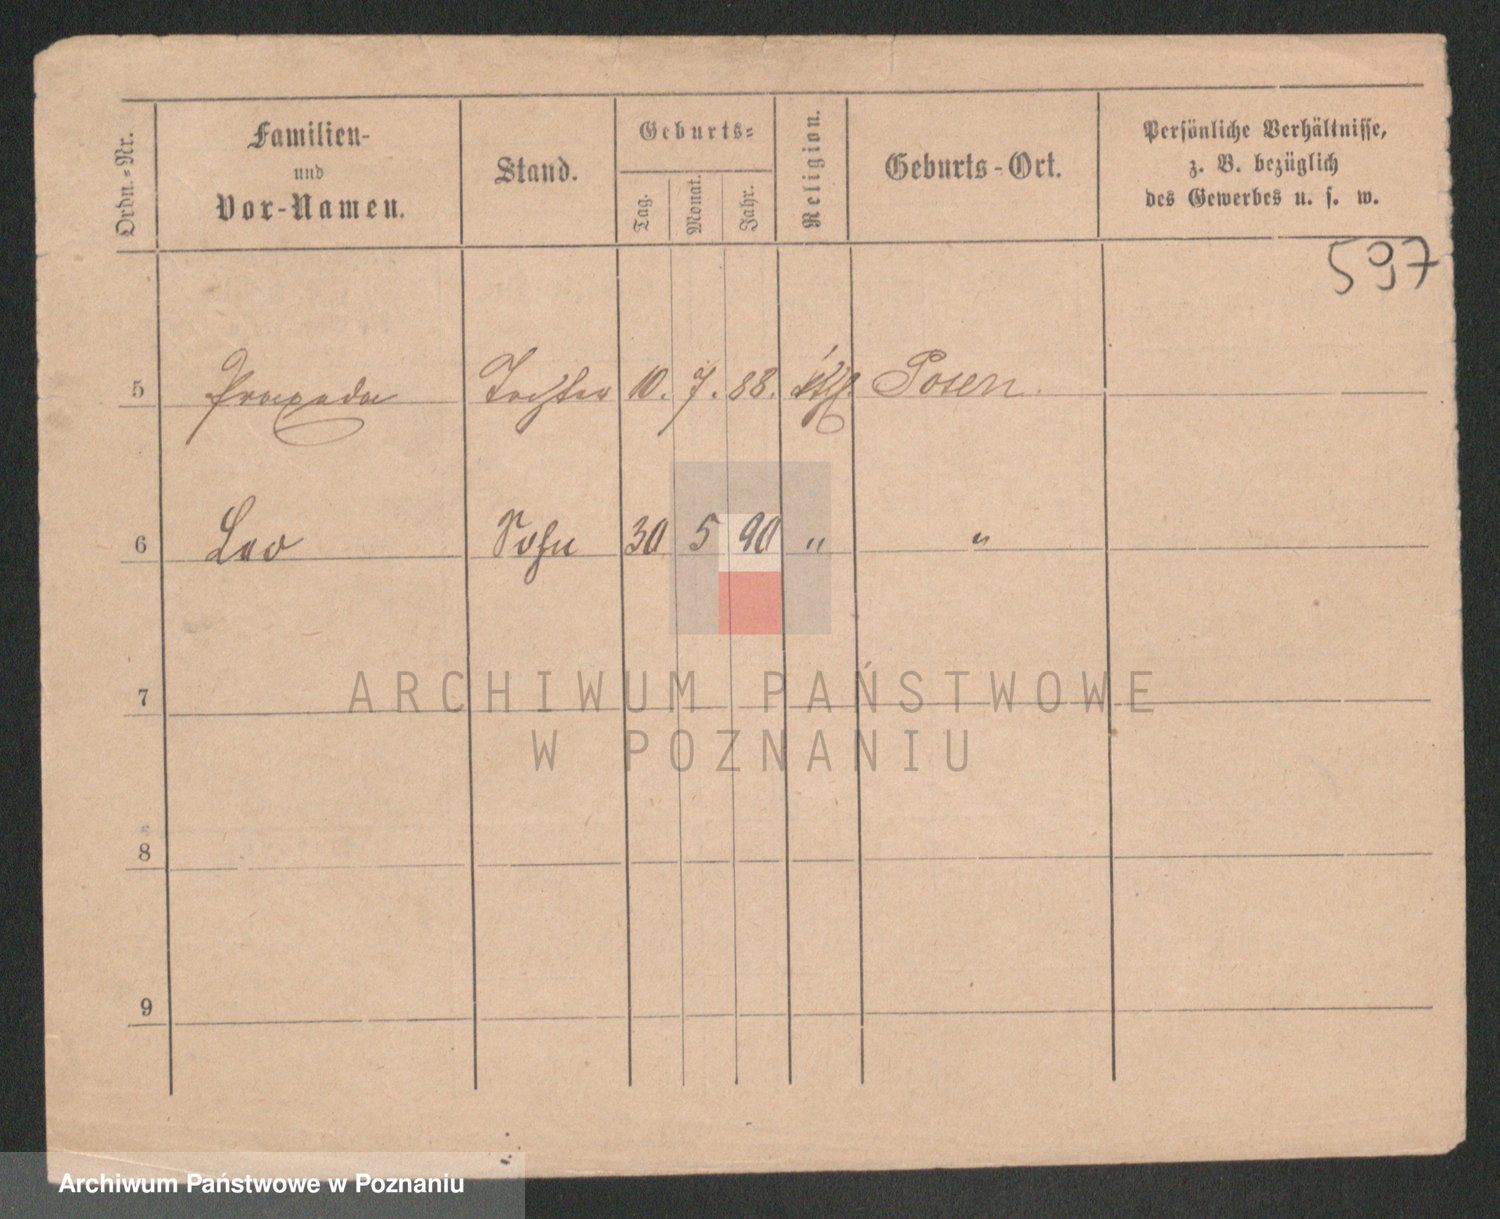 Ordn.-Nr.
Familien-
und
Vor-Namen.
Stand.
Geburts-
Tag.
Monat.
Jahr.
Religion.
Geburts-Ort.
Persönliche Verhältnisse,
z. B. bezüglich
des Gewerbes u. s. w.
597
5 Praxeda Tochter 10. 7. 88. kth. Posen.
6 Leo Sohn 30 5 90 " "
7
ARCHIWUM PAŃSTWOWE
W POZNANIU
8
9
Archiwum Państwowe w Poznaniu